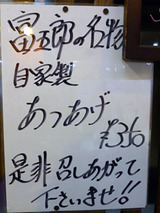 冨五郎の名物
自家製
あつあげ
¥336
是非召しあがって
下さいませ!!